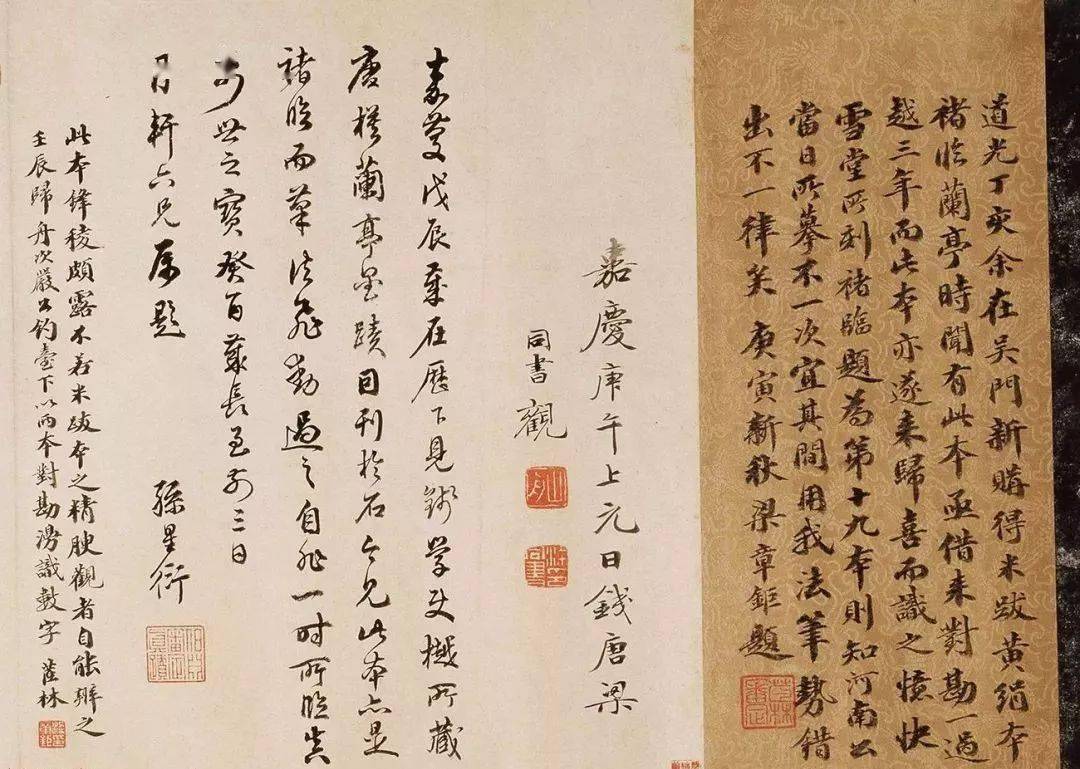 道光丁亥余在吳門新購得米跋黃絹本
褚臨蘭亭時聞有此本亟借来對勘一過
越三年而此本亦遂来歸喜而識之憶快
雪堂所刻褚臨題為第十九本則知河南公
當日所摹不一次宜其間用我法筆勢錯
出不一律矣 庚寅新秋梁章鉅題
嘉慶庚午上元日錢唐梁
同書觀
嘉慶戊辰歲在歷下見錢學使樾所藏
唐模蘭亭墨蹟自刊於石今見此本亦是
褚臨而筆法飛動過之自非一時所臨真
世之寶癸酉歲長至前三日
軒六兄屬題 孫星衍
此本鋒稜頗露不若米跋本之精腴觀者自能辨之
壬辰歸舟次嚴公釣臺下以兩本對勘漫識數字 茝林